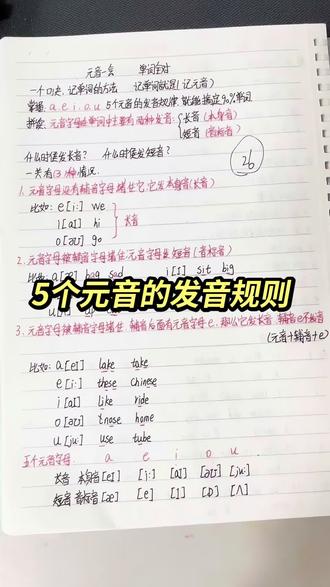 元音一会 单词全对
一个口诀,记单词的方法 记单词就是(记元音)
掌握 a e i o u 5个元音的发音规律,就能搞定90%单词
拼读:元音字母在单词中主要有两种发音:
长音(本身音)
短音(音标音)
什么时候发长音? 什么时候发短音?
一共有3种情况.
26
1.元音字母没有辅音字母堵住它,它发本身音(长音)
比如: e[iː] we
i[aɪ] hi
o[əʊ] go
长音
2.元音字母被辅音字母堵住,元音字母发短音(音标音)
a[æ] bag sad i[ɪ] sit big
5个元音的发音规则
3.元音字母被辅音字母堵住,辅音后面有元音字母e,那么它发长音,辅音e不发音
(元音+辅音+e)
比如: a[eɪ] lake take
e[iː] these Chinese
i[aɪ] like ride
o[əʊ] those home
u[juː] use tube
五个元音字母 a e i o u
长音 本身音[eɪ] [iː] [aɪ] [əʊ] [juː]
短音 音标音[æ] [e] [ɪ] [ɒ] [ʌ]